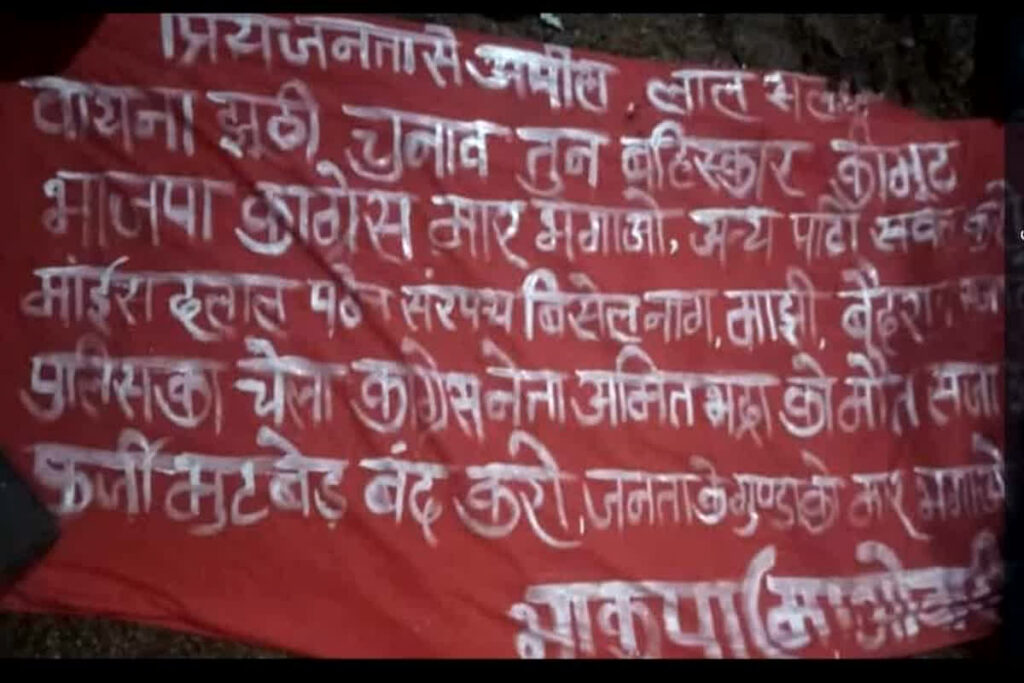 प्रिय जनता से अपील, लाल
वायना झूठी चुनाव तुन बहिस्कार कीमुट
भाजपा कांग्रेस मार भगाओ, अन्य पार्टी
माईरा दलाल सरंपच बिसेल नाग, माझी,
पुलिसका चेला कांग्रेस नेता अमित भद्रा को मौत सजा
फर्जी मुटबेड़ बंद करो, जनता के गुण्डाको मार
भाकपा (माओवादी